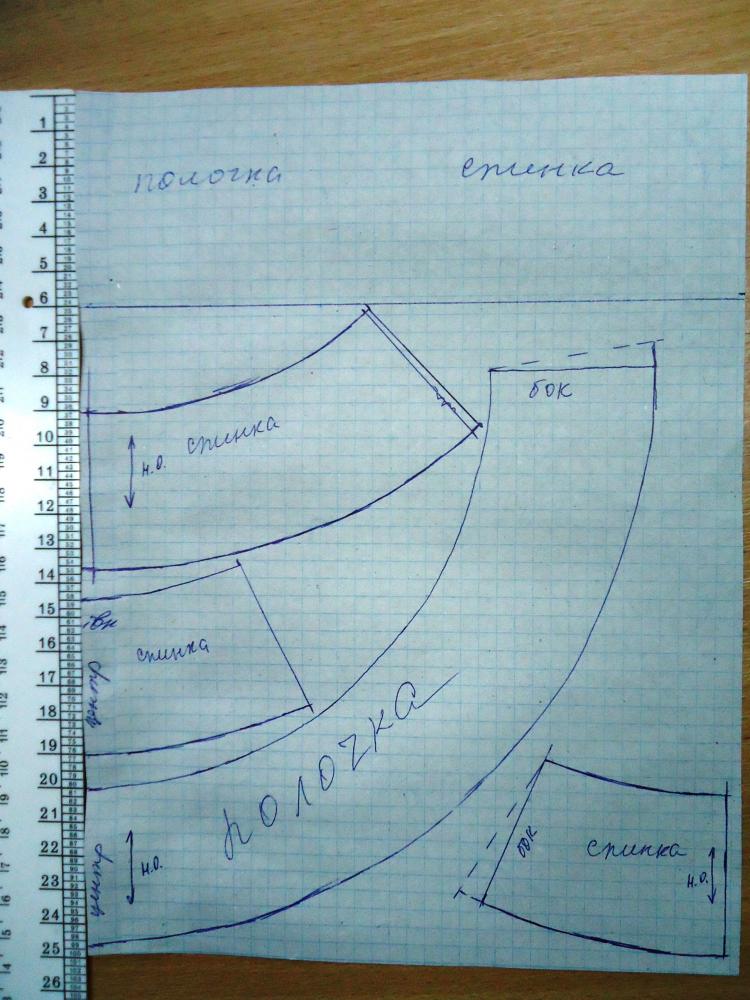 полочка спинка
бок
спинка
н.о.
спинка
центр
полочка
центр
н.о.
бок
спинка
н.о.
1
2
3
4
5
6
7
8
9
10
11
12
13
14
15
16
17
18
19
20
21
22
23
24
25
26